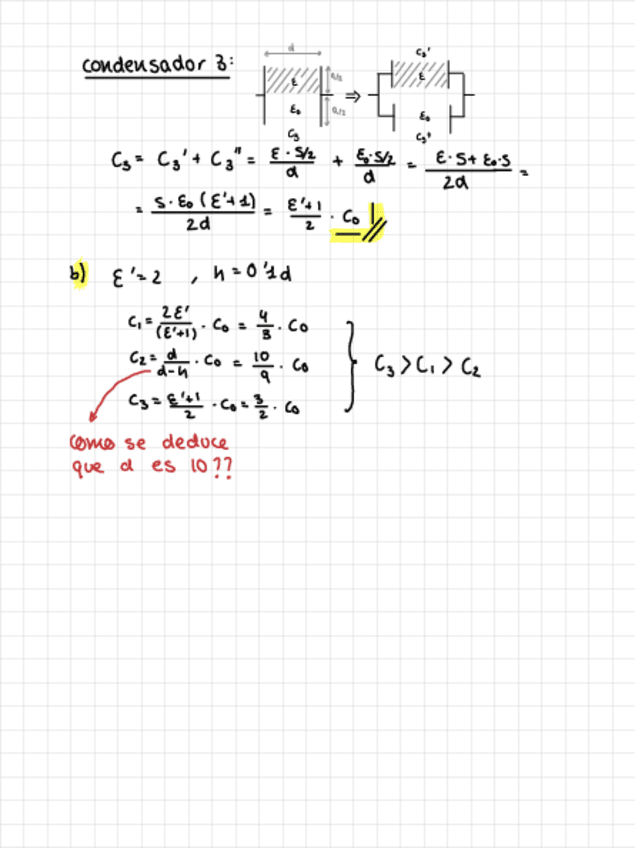 condensador 3:
d
C₃'
ε
ε
ε₀
ε₀
⇒
C₃
C₃'
C₃ = C₃' + C₃'' = ε · S/2 / d + ε₀ · S/2 / d = ε · S + ε₀ · S / 2d =
= S · ε₀ (ε'+1) / 2d = ε'+1 / 2 · C₀
b) ε' = 2 , h = 0'1d
C₁ = 2ε' / (ε'+1) · C₀ = 4/3 · C₀
C₂ = d / d-h · C₀ = 10/9 · C₀
C₃ = ε'+1 / 2 · C₀ = 3/2 · C₀
C₃ > C₁ > C₂
Como se deduce
que d es 10??